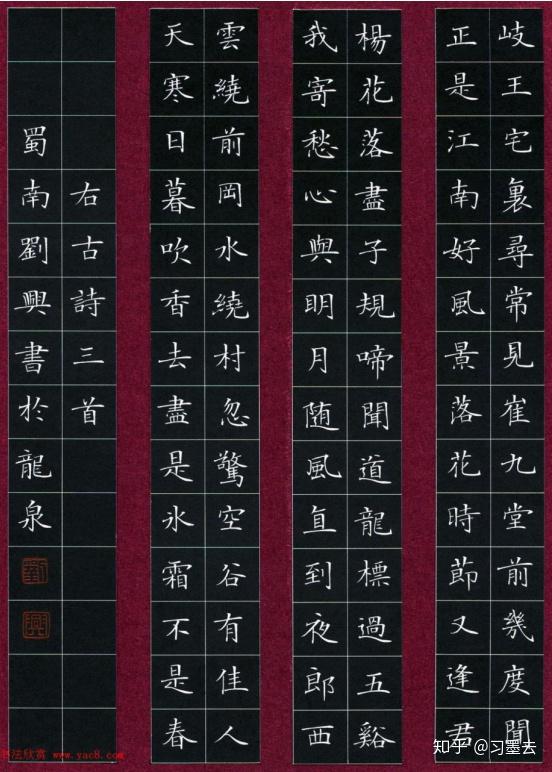 岐王宅裏尋常見崔九堂前幾度聞
正是江南好風景落花時節又逢君
楊花落盡子規啼聞道龍標過五谿
我寄愁心與明月随風直到夜郎西
雲繞前岡水繞村忽驚空谷有佳人
天寒日暮吹香去盡是氷霜不是春
右古詩三首
蜀南劉興書於龍泉
劉
興
书法欣赏 www.yac8.com
知乎 @习墨去